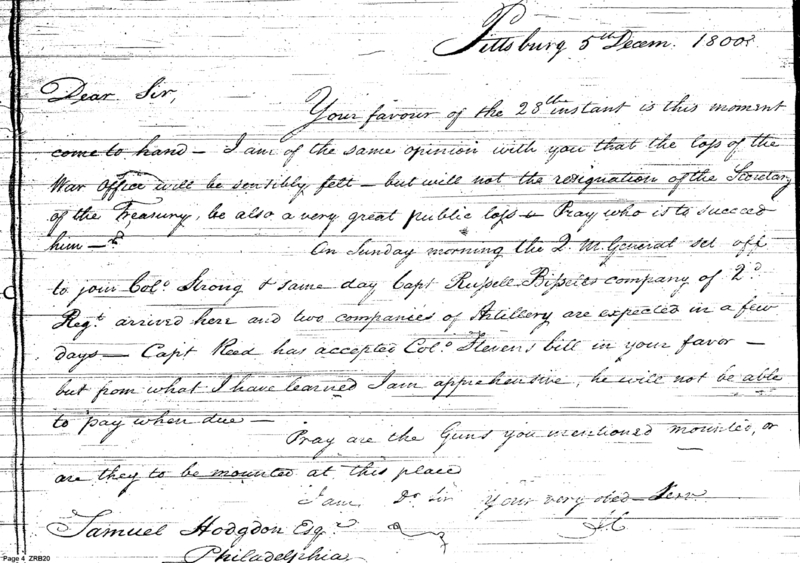 Pittsburg 5th Decem. 1800
Dear Sir,
Your favour of the 28th instant is this moment
come to hand – I am of the same opinion with you that the loss of the
War Office will be sensibly felt – but will not the resignation of the Secretary
of the Treasury, be also a very great public loss – Pray who is to succeed
him –?
On Sunday morning the Q. M. General set off
to join Colo. Strong & same day Capt Russell Bissells company of 2d.
Regt. arrived here and two companies of Artillery are expected in a few
days – Capt Reed has accepted Colo. Stevens bill in your favor –
but from what I have learned I am apprehensive, he will not be able
to pay when due –
Pray are the Guns you mentioned mounted, or
are they to be mounted at this place
I am Dr Sir Your very obed Serv
Samuel Hodgdon Esqr
Philadelphia
Page 4 ZRB20